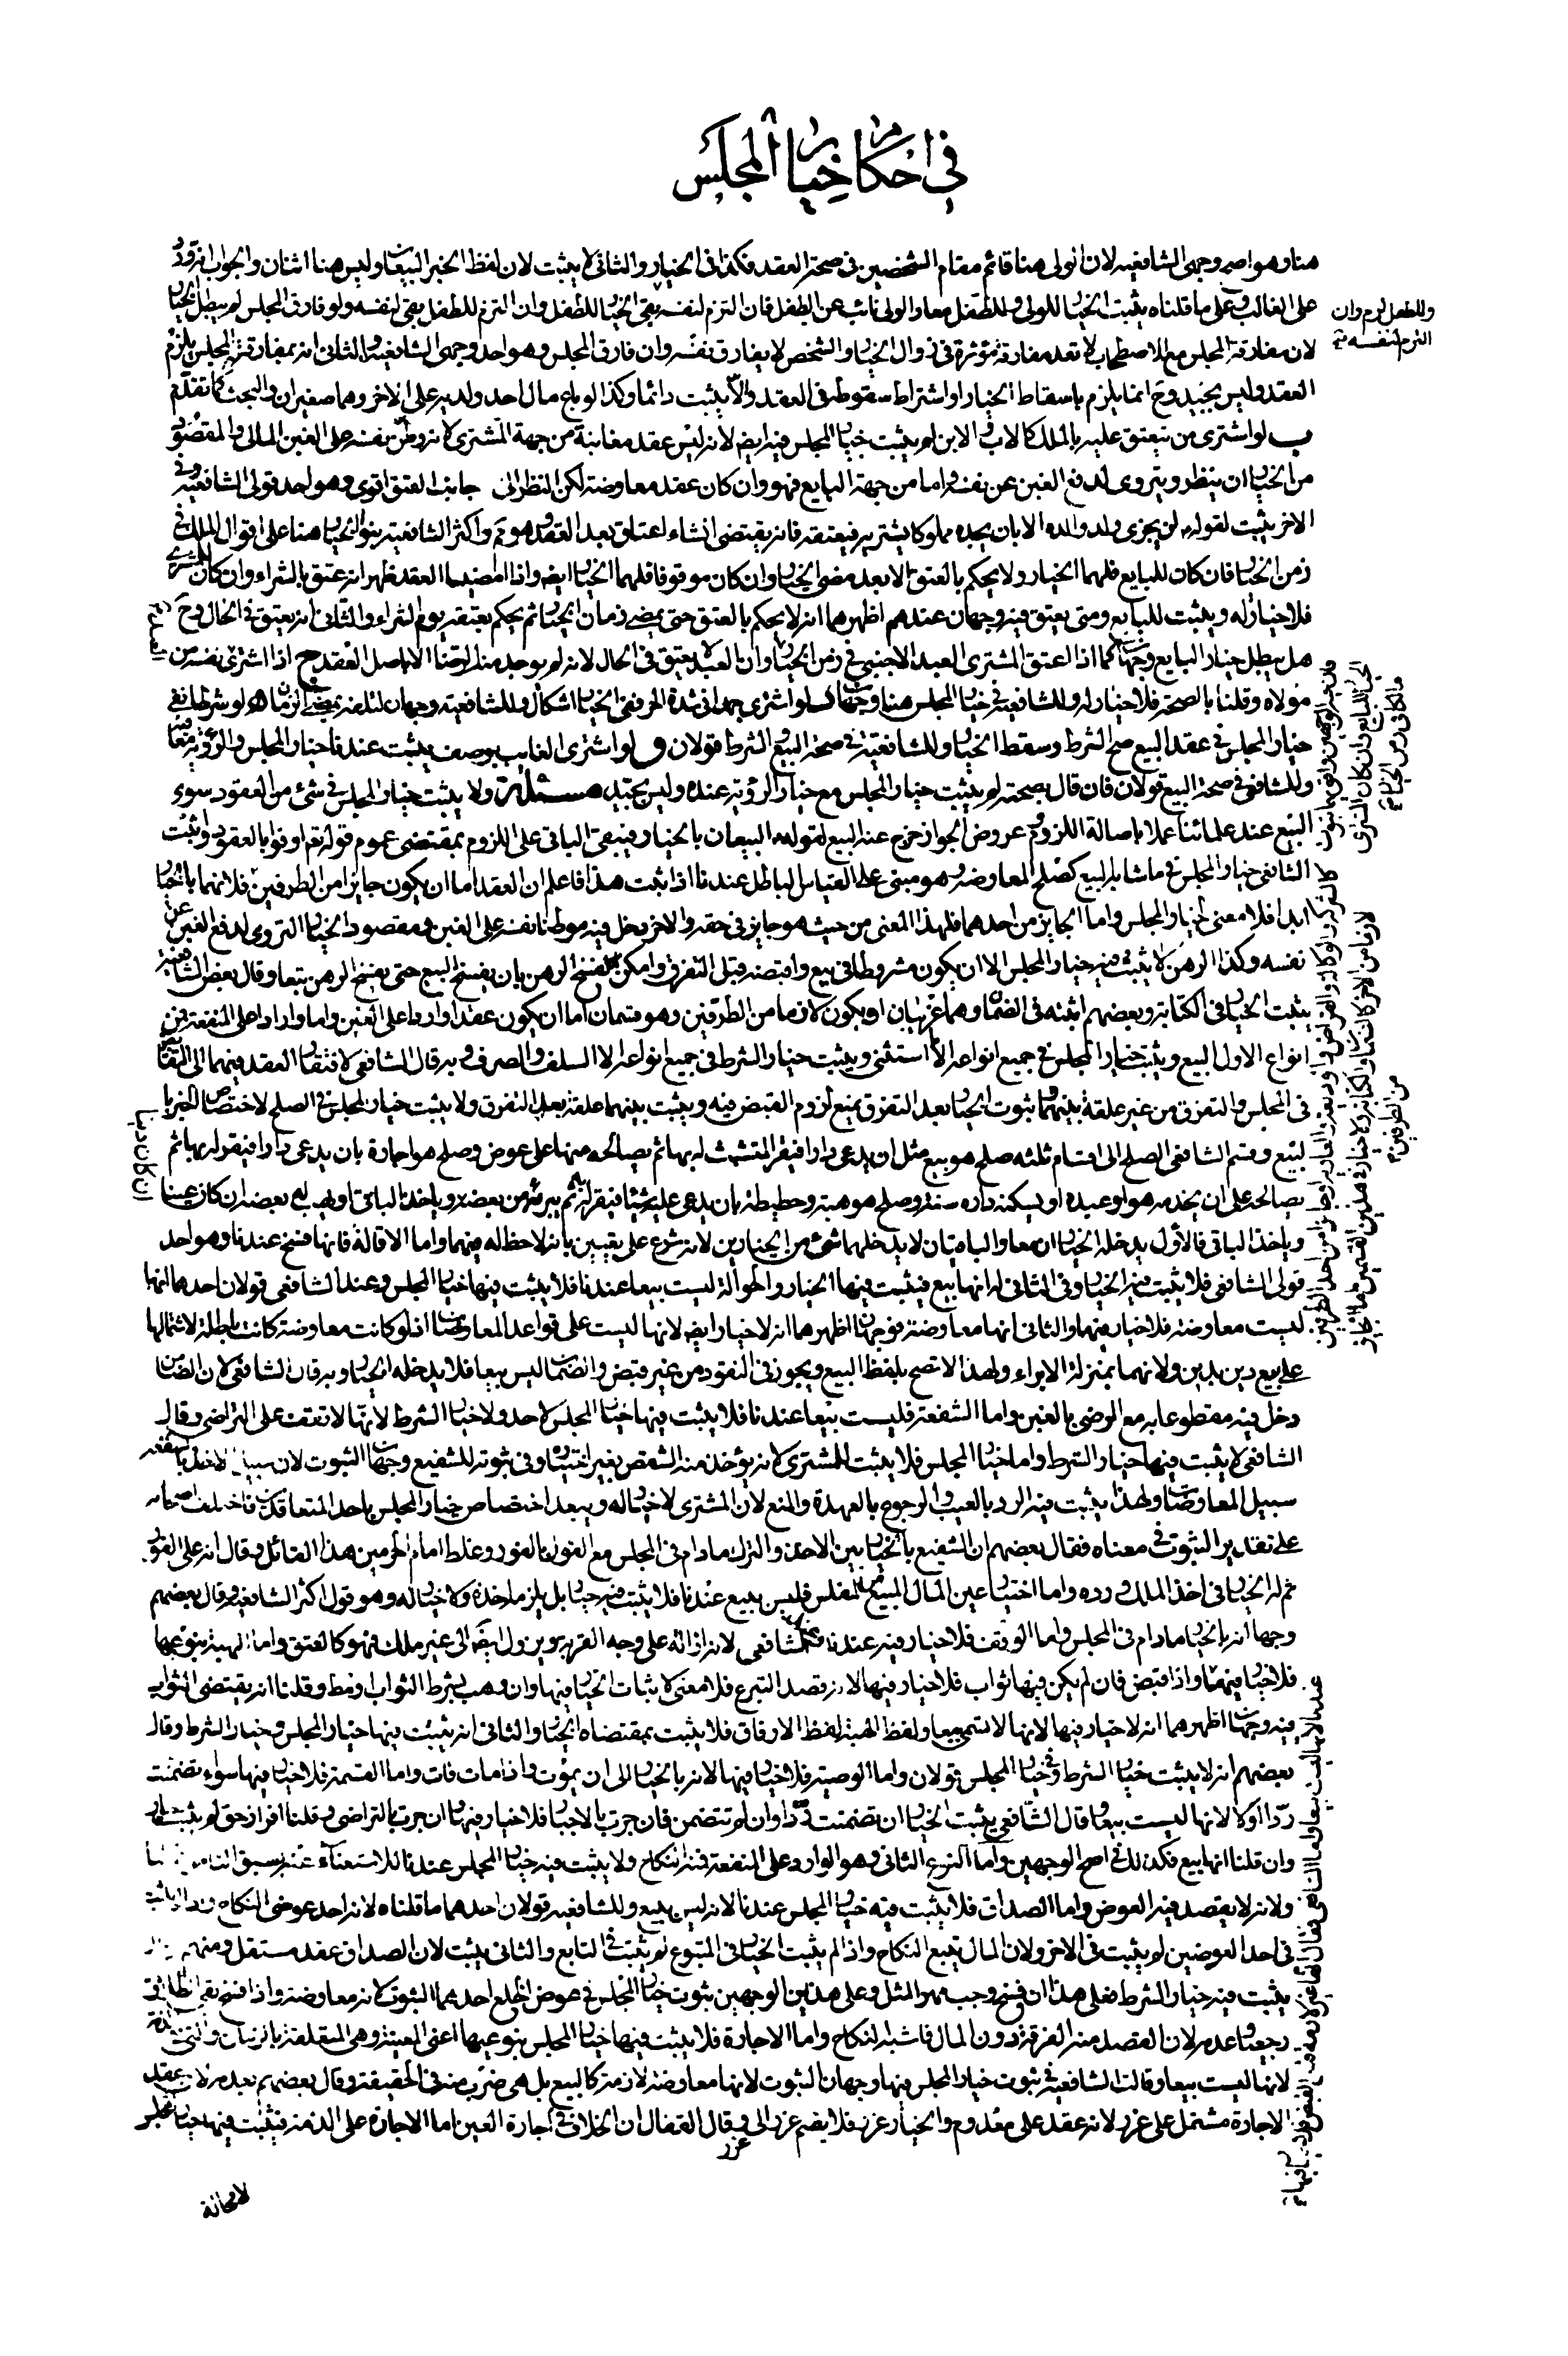 في احكام خيار المجلس
هنا وهو اصح وجهي الشافعية لان الولي هنا قائم مقام الشخصين في صحة العقد فكذا في الخيار والثاني لا يثبت لان لفظ الخبر البيعان وليس هنا اثنان والجواب انه ورد
على الغالب وعلى ما قلناه يثبت الخيار للولي وللطفل معا والولي نائب عن الطفل فان التزم لنفسه بقي الخيار للطفل وان التزم للطفل بقي لنفسه ولو فارق المجلس لم يبطل الخيار
لان مفارقة المجلس مع الاصطحاب لا تعد مفارقة مؤثرة في زوال الخيار والشخص لا يفارق نفسه وان فارق المجلس وهو احد وجهي الشافعية والثاني انه بمفارقة المجلس يلزم
العقد وليس بجيد وح انما يلزم باسقاط الخيار او اشتراط سقوطه في العقد والا يثبت دائما وكذا لو باع مال احد ولديه على الاخر وهما صغيران والبحث كما تقدم
ب لو اشترى من ينعتق عليه بالملك كالاب والابن لم يثبت خيار المجلس فيه ايضا لانه ليس عقد مغابنة من جهة المشتري لانه وطن نفسه على الغبن المالي والمقصود
من الخيار ان ينظر ويتروى لدفع الغبن عن نفسه واما من جهة البايع فهو وان كان عقد معاوضة لكن النظر الى جانب العتق اقوى وهو احد قولي الشافعية وفي
الاخر يثبت لقوله لن يجزي ولد والده الا بان يجده مملوكا يشتريه فيعتقه فانه يقتضي انشاء اعتاق بعد العقد وهو مم واكثر الشافعية بنوا الخيار هنا على اقوال الملك في
زمن الخيار فان كان للبايع فلهما الخيار ولا يحكم بالعتق الا بعد مضي الخيار وان كان موقوفا فلهما الخيار ايضا واذا امضيا العقد ظهر انه عتق بالشراء وان كان للمشتري
فلا خيار له ويثبت للبايع ومتى يعتق فيه وجهان عندهم اظهرهما انه لا يحكم بالعتق حتى يمضي زمان الخيار ثم يحكم بعتقه يوم الشراء والثاني انه يعتق في الحال وح
هل يبطل خيار البايع وجهان كما اذا اعتق المشتري العبد الاجنبي في زمن الخيار وان العبد لا يعتق في الحال لانه لم يوجد منه الرضا الا باصل العقد ج اذا اشترى نفسه من
مولاه وقلنا بالصحة فلا خيار له وللشافعية في خيار المجلس هنا وجهان د لو اشترى جمدا في شدة الحر ففي الخيار اشكال وللشافعية وجهان لتلفه بمضي الزمان ه لو شرطا نفي
خيار المجلس في عقد البيع صح الشرط وسقط الخيار وللشافعية في صحة البيع والشرط قولان و لو اشترى الغايب بوصف يثبت عندنا خيار المجلس والرؤية معا
وللشافعي في صحة البيع قولان فان قال بصحته لم يثبت خيار المجلس مع خيار الرؤية عنده وليس بجيد مسئلة ولا يثبت خيار المجلس في شيء من العقود سوى
البيع عند علمائنا عملا باصالة اللزوم وعروض الجواز خرج عنه البيع لقوله البيعان بالخيار فيبقى الباقي على اللزوم بمقتضى عموم قوله تعالى اوفوا بالعقود واثبت
الشافعي خيار المجلس في ما شابه البيع كصلح المعاوضة وهو مبني على القياس الباطل عندنا اذا ثبت هذا فاعلم ان العقد اما ان يكون جايزا من الطرفين فلانهما بالخيار
ابدا فلا معنى لخيار المجلس واما الجايز من احدهما فلهذا المعنى من حيث هو جايز في حقه والاخر دخل فيه موطنا نفسه على الغبن ومقصود الخيار التروي لدفع الغبن عن
نفسه وكذا الرهن لا يثبت فيه خيار المجلس الا ان يكون مشروطا في بيع واقبضه قبل التفرق وامكن فسخ الرهن بان يفسخ البيع حتى يفسخ الرهن تبعا وقال بعض الشافعية
يثبت الخيار في الكتابة وبعضهم اثبته في الضمان وهما غريبان او يكون لازما من الطرفين وهو قسمان اما ان يكون عقدا واردا على العين واما واردا على المنفعة فمن
انواع الاول البيع ويثبت خيار المجلس في جميع انواعه الا ما استثني ويثبت خيار الشرط في جميع انواعه الا السلف والصرف وبه قال الشافعي لافتقار العقد فيهما الى التقابض
في المجلس والتفرق من غير علقة بينهما وثبوت الخيار بعد التفرق يمنع لزوم القبض فيه ويثبت بينهما علقة بعد التفرق ولا يثبت خيار المجلس في الصلح لاختصاص الخبر با
لبيع وقسم الشافعي الصلح الى اقسام ثلثة صلح هو بيع مثل ان يدعي دارا فيقر المتشبث له بها ثم يصالحه منها على عوض وصلح هو اجارة بان يدعي دارا فيقر له بها ثم
يصالحه على ان يخدمه هو او عبده او يسكنه داره سنة وصلح هو هبة وحطيطة بان يدعي عليه شيئا فيقر له ثم يبرئه من بعضه وياخذ الباقي او يهب له بعضه ان كان عينا
وياخذ الباقي فالاول يدخله الخياران معا والباقيان لا يدخلهما شيء من الخيارين لانه شرع على يقين بانه لا حظ له فيهما واما الاقالة فانها فسخ عندنا وهو احد
قولي الشافعي فلا يثبت فيه الخيار وفي الثاني له انها بيع فيثبت فيها الخيار والحوالة ليست بيعا عندنا فلا يثبت فيها خيار المجلس وعند الشافعي قولان احدهما انها
ليست معاوضة فلا خيار فيها والثاني انها معاوضة فوجهان اظهرهما انه لا خيار ايضا لانها ليست على قواعد المعاوضات اذ لو كانت معاوضة كانت باطلة لاشتمالها
على بيع دين بدين ولانهما بمنزلة الابراء ولهذا لا تصح بلفظ البيع ويجوز في النقود من غير قبض والضمان ليس بيعا فلا يدخله الخيار وبه قال الشافعي لان الضامن
دخل فيه مقطوعا به مع الرضى بالغبن واما الشفعة فليست بيعا عندنا فلا يثبت فيها خيار المجلس لاحد ولا خيار الشرط لانها لا تقف على التراضي وقال
الشافعي لا يثبت فيها خيار الشرط واما خيار المجلس فلا يثبت للمشتري لانه يؤخذ منه الشقص بغير اختياره وفي ثبوته للشفيع وجهان الثبوت لان سبيل الاخذ بالشفعة
سبيل المعاوضات ولهذا يثبت فيه الرد بالعيب والرجوع بالعهدة والمنع لان المشتري لا خيار له ويبعد اختصاص خيار المجلس باحد المتعاقدين فاختلف اصحابه
على تقدير الثبوت في معناه فقال بعضهم ان الشفيع بالخيار بين الاخذ والترك ما دام في المجلس مع القول بالفور وغلط امام الحرمين هذا القائل وقال انه على الفور
ثم له الخيار في اخذ الملك ورده واما اختيار عين المال المبيع من المفلس فليس ببيع عندنا فلا يثبت فيه خيار بل يلزم ما اخذه ولا خيار له وهو قول اكثر الشافعية وقال بعضهم
وجها انه بالخيار ما دام في المجلس واما الوقف فلا خيار فيه عندنا وعند الشافعي لانه ازالة على وجه القربة ويزول ايضا الى غير ملك فهو كالعتق واما الهبة بنوعيها
فلا خيار فيهما واذا قبض فان لم يكن فيها ثواب فلا خيار فيها لانه قصد التبرع فلا معنى لاثبات الخيار فيها وان وهب بشرط الثواب او مطلقا وقلنا انه يقتضي الثواب
فيه وجهان اظهرهما انه لا خيار فيها لانها لا تسمى بيعا ولفظ الهبة لفظ الارفاق فلا يثبت بمقتضاه الخيار والثاني انه يثبت فيها خيار المجلس وخيار الشرط وقال
بعضهم انه لا يثبت خيار الشرط وفي خيار المجلس قولان واما الوصية فلا خيار فيها لانه بالخيار الى ان يموت واذا مات فات واما القسمة فلا خيار فيها سواء تضمنت
ردا او لا لانها ليست بيعا وقال الشافعي يثبت الخيار ان تضمنت ردا وان لم تتضمن فان جرت بالاجبار فلا خيار فيها وان جرت بالتراضي وقلنا افراز حق لم يثبت
وان قلنا انها بيع فكذلك في اصح الوجهين واما النوع الثاني وهو الوارد على المنفعة فمنه النكاح ولا يثبت فيه خيار المجلس عندنا للاستغناء عنه بسبق التامل
ولانه لا يقصد فيه العوض واما الصداق فلا يثبت فيه خيار المجلس عندنا لانه ليس ببيع وللشافعية قولان احدهما ما قلناه لانه احد عوضي النكاح
في احد العوضين لم يثبت في الاخر ولان المال تبع النكاح واذا لم يثبت الخيار في المتبوع لم يثبت في التابع والثاني يثبت لان الصداق عقد مستقل ومنهم
يثبت فيه خيار الشرط فعلى هذا ان فسخ وجب مهر المثل وعلى هذين الوجهين ثبوت خيار المجلس في عوض الخلع احدهما الثبوت لانه معاوضة واذا فسخ بقي الطلاق
رجعيا وعدمه لان القصد منه الفرقة دون المال فاشبه النكاح واما الاجارة فلا يثبت فيها خيار المجلس بنوعيها اعني المعينة وهي المتعلقة بالزمان والتي
لانها ليست بيعا وقالت الشافعية في ثبوت خيار المجلس فيها وجهان الثبوت لانها معاوضة لازمة كالبيع بل هي ضرب منه في الحقيقة وقال بعضهم بعدمه لان عقد
الاجارة مشتمل على غرر لانه عقد على معدوم والخيار غرر فلا يضم غرر الى غرر وقال القفال ان الخلاف في اجارة العين اما الاجارة على الذمة فيثبت فيها خيار المجلس
لا محالة
وللطفل لزم وان
التزم لنفسه
ان كان دينا
من الطرفين